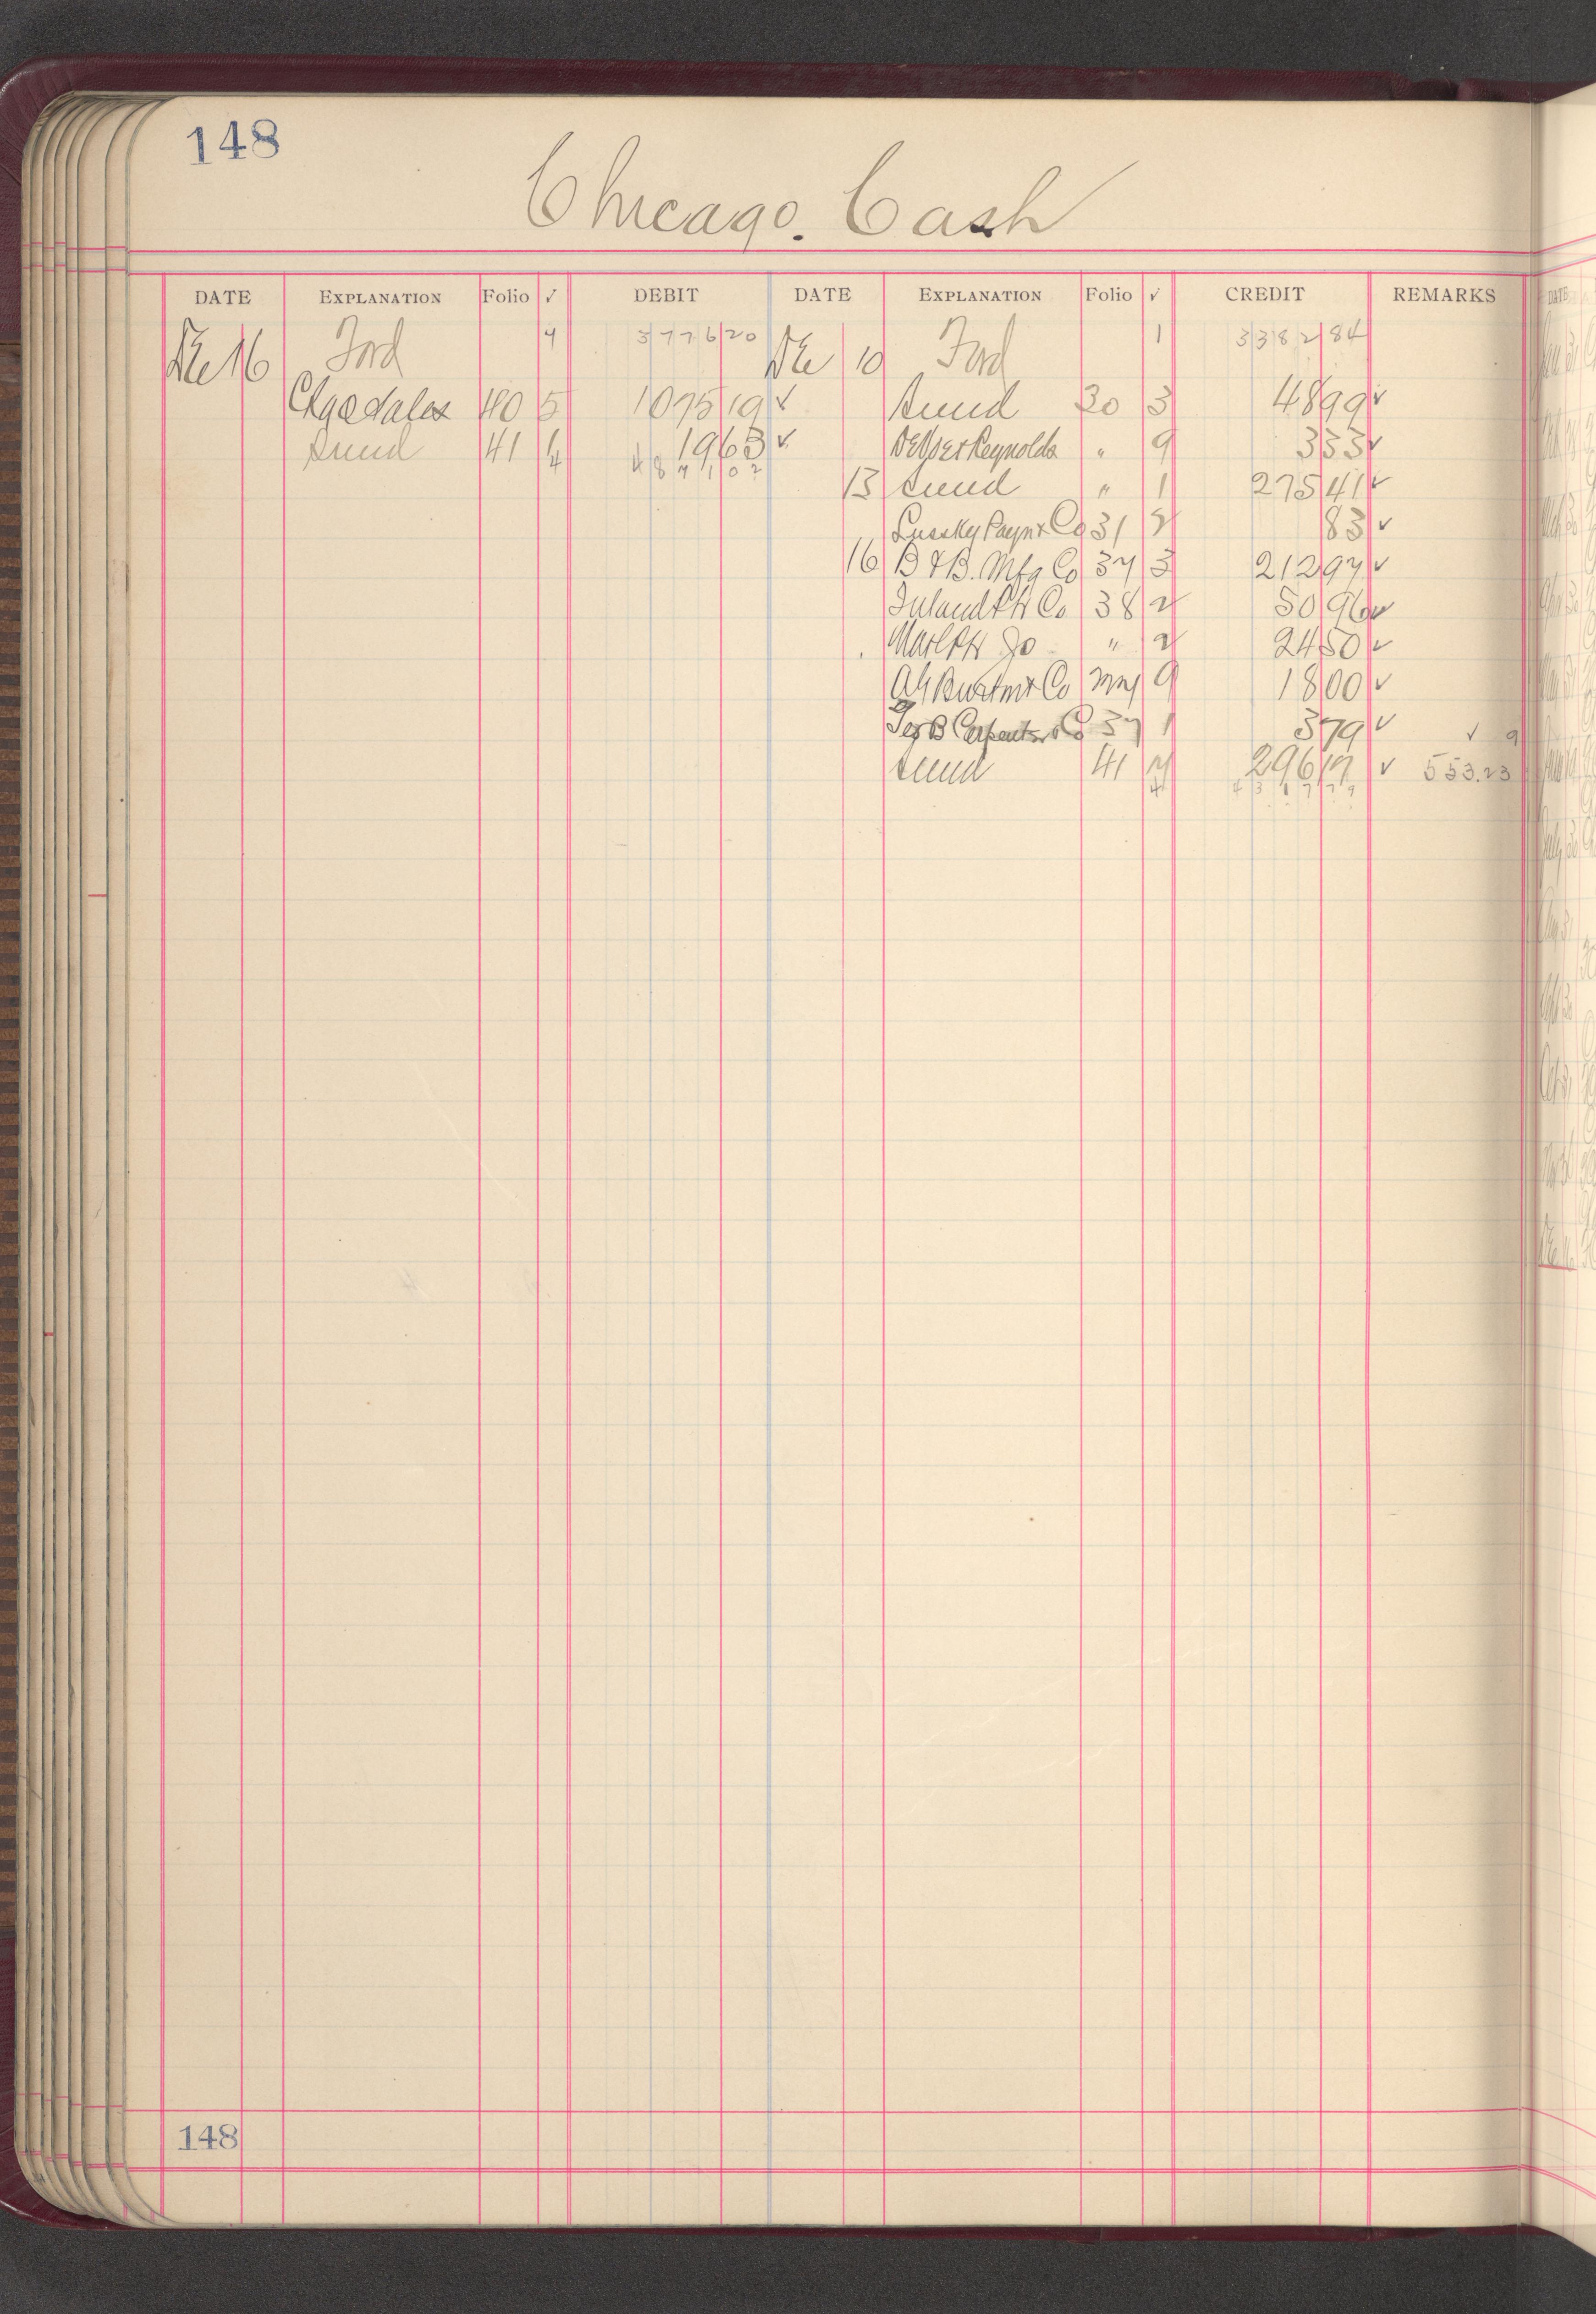 148
Chicago. Cash
DATE EXPLANATION Folio √ DEBIT DATE EXPLANATION Folio √ CREDIT REMARKS
Dec 16 Ford 4 3776 20 Dec 10 Ford 1 3382 84
Chgo Sales 40 5 1075 19 √ Sund 30 3 48 99 √
Sund 41 4 19 63 √ Reynolds " 9 3 33 √
4871 02 13 Sund " 1 275 41 √
Payn & Co 31 2 83 √
16 B & B. Mfg Co 37 3 212 97 √
Inland Co 38 2 50 96 √
" 2 24 50 √
Co 9 18 00 √
Geo B Carpenter & Co 37 1 3 79 √ √ 9
Sund 41 296 17 √ 553.23
4317 79
148